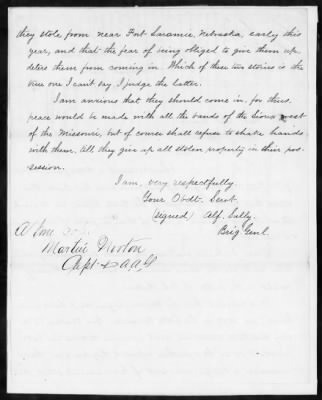 they stole from near Fort Laramie, Nebraska, early this
year, and that the fear of being obliged to give them up,
deters them from coming in. Which of these two stories is the
true one I can't say, I judge the latter.
I am anxious that they should come in, for thus,
peace would be made with all the bands of the Sioux west
of the Missouri, but of course shall refuse to shake hands
with them, till they give up all stolen property in their pos-
session.
I am, very respectfully
Your Obdt. Servt.
(signed) Alf. Sully,
Brig Genl.
A true
Martin Norton
Capt & A A G